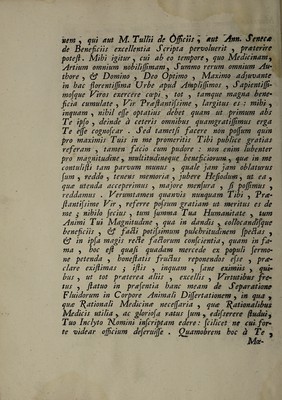 nem , qui aut M. Tullii de Officiis , aut Ann. Senecæ
de Beneficiis excellentia Scripta pervoluerit , præterire
potest. Mihi igitur, cui ab eo tempore, quo Medicinam,
Artium omnium nobilissimam, Summo rerum omnium Au-
thore , & Domino , Deo Optimo , Maximo adjuvante
in hac florentissima Urbe apud Amplissimos , Sapientissi-
mosque Viros exercere cœpi , tot , tamque magna bene-
ficia cumulate , Vir Præstantissime , largitus es : mihi ,
inquam , nihil esse optatius debet quam ut primum abs
Te ipso , deinde à ceteris omnibus quamgratissimus erga
Te esse cognoscar . Sed tametsi facere non possum quin
pro maximis Tuis in me promeritis Tibi publice gratias
referam , tamen facio cum pudore : non enim lubenter
pro magnitudine, multitudineque beneficiorum, quæ in me
contulisti tam parvum munus , quale jam jam oblaturus
sum , reddo , teneor memoria , jubere Hesiodum, ut ea ,
quæ utenda acceperimus , majore mensura , si possimus ,
reddamus . Verumtamen quamvis nunquam Tibi , Præ-
stantissime Vir , referre possum gratiam ut meritus es de
me ; nihilo secius , tum summa Tua Humanitate , tum
Animi Tui Magnitudine , qua in dandis , collocandisque
beneficiis , & facti potissimum pulchritudinem spectas ,
& in ipsa magis recte factorum conscientia, quam in fa-
ma , hoc est quasi quadam mercede ex populi sermo-
ne petenda , honestatis fructus reponendos esse , præ-
clare existimas ; istis , inquam , sane eximiis , qui-
bus , ut tot præterea aliis , excellis , Virtutibus fre-
tus , statuo in præsentia hanc meam de Separatione
Fluidorum in Corpore Animali Dissertationem , in qua ,
quæ Rationali Medicinæ necessaria , quæ Rationalibus
Medicis utilia , ac gloriosa ratus sum , edisserere studui,
Tuo Inclyto Nomini inscriptam edere: scilicet ne cui for-
te videar officium deseruisse . Quamobrem hoc à Te ,
Ma-